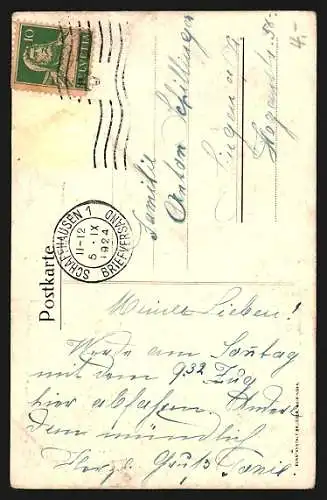 10
HELVETIA
SCHAFFHAUSEN 1
11-12
5. IX
1924
BRIEFVERSAND
Postkarte
Familie
Anton Schillinger
Singen a/H
4.-
Meine Lieben!
Werde am Sonntag
mit dem 9 32 Zug
hier abfahren. Anders
dem mündlich
Herzl. Gruß